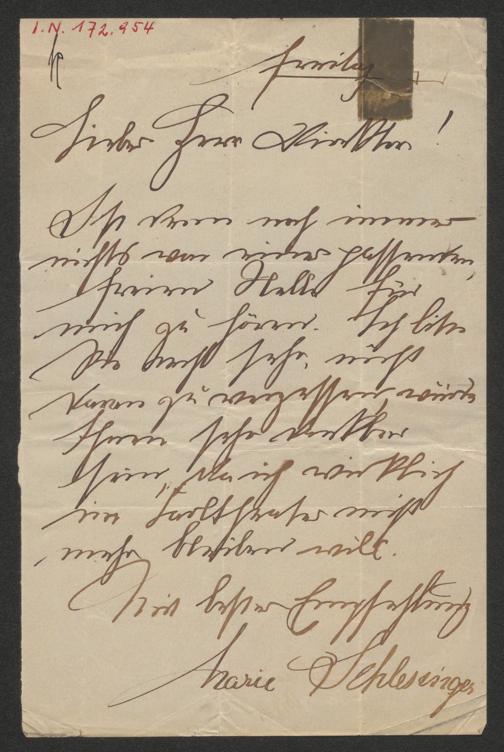 I.N. 172.954
Freitag
Lieber Herr Direktor!
Ist denn noch immer
nichts von einer passenden,
freien Stelle für
mich zu hören. Ich bitte
Sie recht sehr, nicht
daran zu vergessen, würde
Ihnen sehr dankbar
sein, da ich wirklich
im Carltheater nicht
mehr bleiben will.
Mit bester Empfehlung
Marie Schlesinger